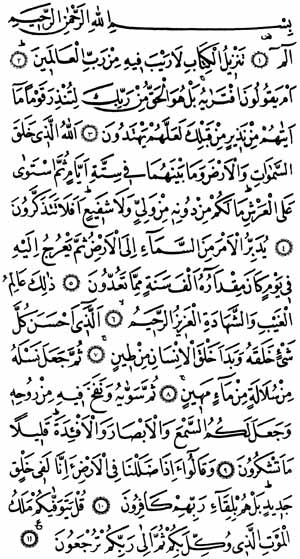 بِسْمِ اللهِ الرَّحْمٰنِ الرَّحِيْمِ
الٓمّٓ ۝۱ تَنْزِيْلُ الْكِتٰبِ لَا رَيْبَ فِيْهِ مِنْ رَّبِّ الْعٰلَمِيْنَ ۝۲
اَمْ يَقُوْلُوْنَ افْتَرٰىهُ بَلْ هُوَ الْحَقُّ مِنْ رَّبِّكَ لِتُنْذِرَ قَوْمًا مَّاۤ
اَتٰىهُمْ مِّنْ نَّذِيْرٍ مِّنْ قَبْلِكَ لَعَلَّهُمْ يَهْتَدُوْنَ ۝۳ اَللهُ الَّذِيْ خَلَقَ
السَّمٰوٰتِ وَالْاَرْضَ وَمَا بَيْنَهُمَا فِيْ سِتَّةِ اَيَّامٍ ثُمَّ اسْتَوٰى
عَلَى الْعَرْشِ مَا لَكُمْ مِّنْ دُوْنِهٖ مِنْ وَّلِيٍّ وَّلَا شَفِيْعٍ اَفَلَا تَتَذَكَّرُوْنَ
۝۴ يُدَبِّرُ الْاَمْرَ مِنَ السَّمَآءِ اِلَى الْاَرْضِ ثُمَّ يَعْرُجُ اِلَيْهِ
فِيْ يَوْمٍ كَانَ مِقْدَارُهٗۤ اَلْفَ سَنَةٍ مِّمَّا تَعُدُّوْنَ ۝۵ ذٰلِكَ عٰلِمُ
الْغَيْبِ وَالشَّهَادَةِ الْعَزِيْزُ الرَّحِيْمُ ۝۶ الَّذِيْۤ اَحْسَنَ كُلَّ
شَيْءٍ خَلَقَهٗ وَبَدَاَ خَلْقَ الْاِنْسَانِ مِنْ طِيْنٍ ۝۷ ثُمَّ جَعَلَ نَسْلَهٗ
مِنْ سُلٰلَةٍ مِّنْ مَّآءٍ مَّهِيْنٍ ۝۸ ثُمَّ سَوّٰىهُ وَنَفَخَ فِيْهِ مِنْ رُّوْحِهٖ
وَجَعَلَ لَكُمُ السَّمْعَ وَالْاَبْصَارَ وَالْاَفْـِٕدَةَ قَلِيْلًا
مَّا تَشْكُرُوْنَ ۝۹ وَقَالُوْۤا ءَاِذَا ضَلَلْنَا فِي الْاَرْضِ ءَاِنَّا لَفِيْ خَلْقٍ
جَدِيْدٍ بَلْ هُمْ بِلِقَآئِ رَبِّهِمْ كٰفِرُوْنَ ۝۱۰ قُلْ يَتَوَفّٰىكُمْ مَّلَكُ
الْمَوْتِ الَّذِيْ وُكِّلَ بِكُمْ ثُمَّ اِلٰى رَبِّكُمْ تُرْجَعُوْنَ ۝۱۱ ع